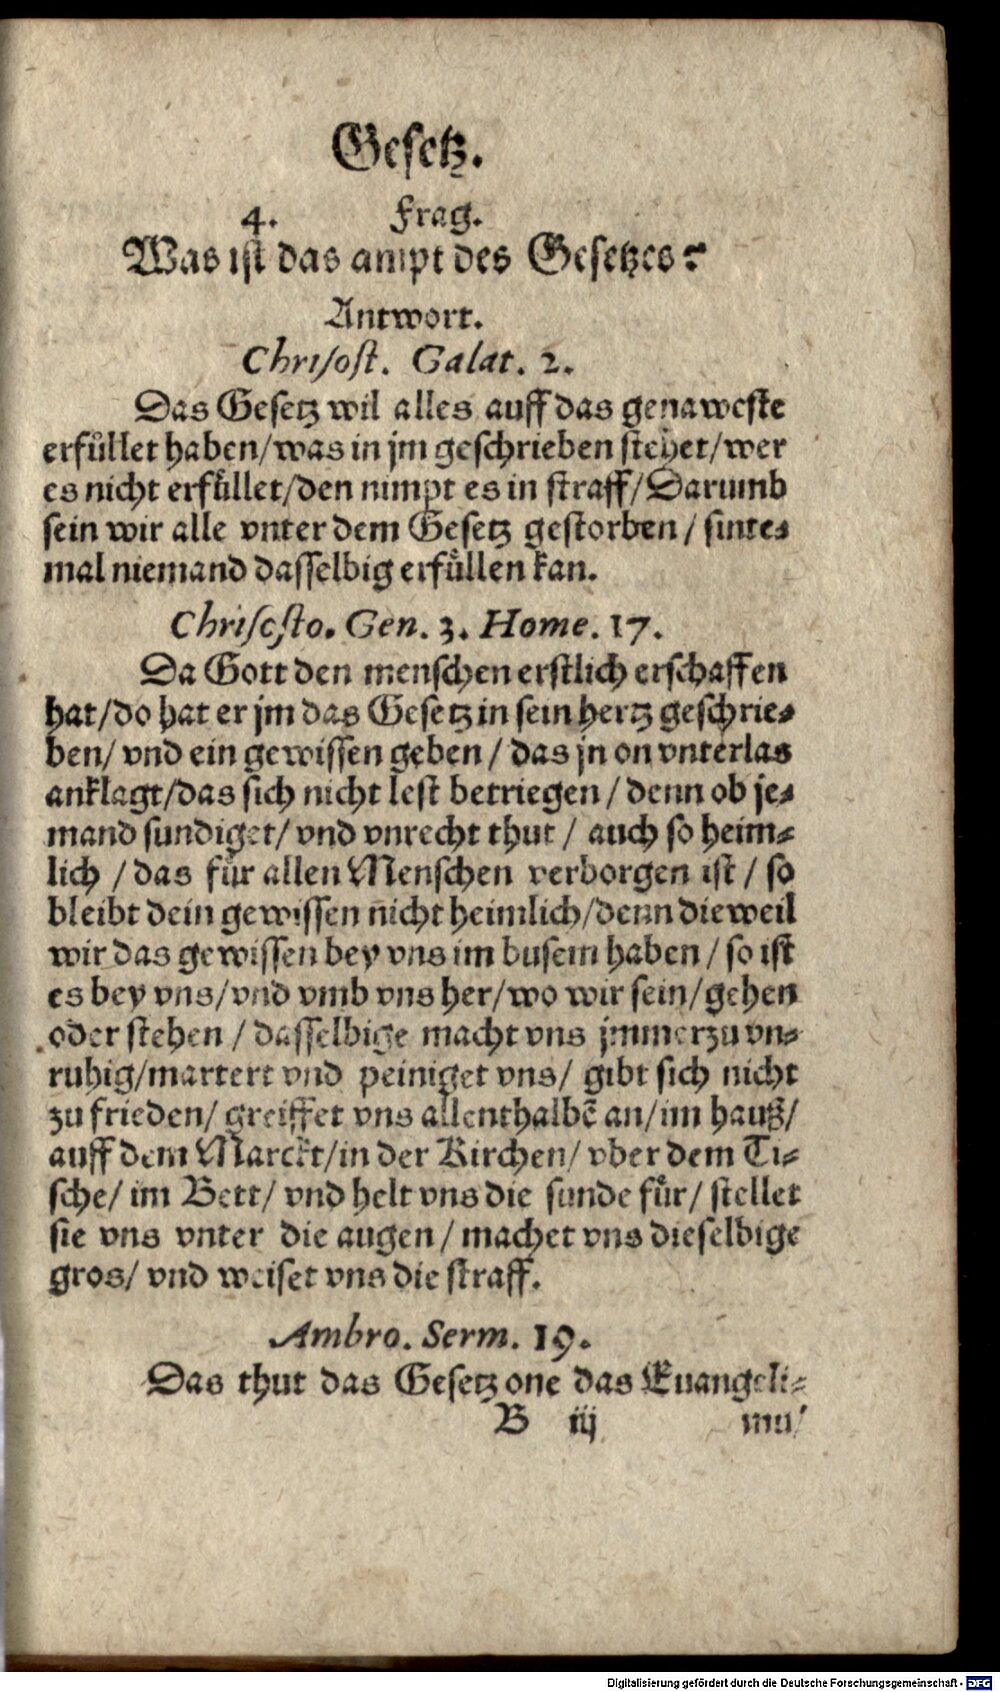 Gesetz.
4. Frag.
Was ist das ampt des Gesetzes?
Antwort.
Chrisost. Galat. 2.
Das Gesetz wil alles auff das genaweste
erfüllet haben/was in jm geschrieben stehet/wer
es nicht erfüllet/den nimpt es in straff/Darumb
sein wir alle vnter dem Gesetz gestorben/ sinte-
mal niemand dasselbig erfüllen kan.
Chrisosto. Gen. 3. Home. 17.
Da Gott den menschen erstlich erschaffen
hat/do hat er jm das Gesetz in sein hertz geschrie-
ben/ vnd ein gewissen geben/ das jn on vnterlas
anklagt/das sich nicht lest betriegen/ denn ob je-
mand sundiget/ vnd vnrecht thut/ auch so heim-
lich/das für allen Menschen verborgen ist/ so
bleibt dein gewissen nicht heimlich/denn dieweil
wir das gewissen bey vns im busem haben/ so ist
es bey vns/vnd vmb vns her/wo wir sein/gehen
oder stehen/ dasselbige macht vns jmmerzu vn-
ruhig/martert vnd peiniget vns/ gibt sich nicht
zu frieden/ greiffet vns allenthalbē an/im hauß/
auff dem Marckt/in der Kirchen/ vber dem Ti-
sche/ im Bett/ vnd helt vns die sunde für/ stellet
sie vns vnter die augen/ machet vns dieselbige
gros/ vnd weiset vns die straff.
Ambro. Serm. 19.
Das thut das Gesetz one das Euangeli-
B iij mu/
Digitalisierung gefördert durch die Deutsche Forschungsgemeinschaft - DFG